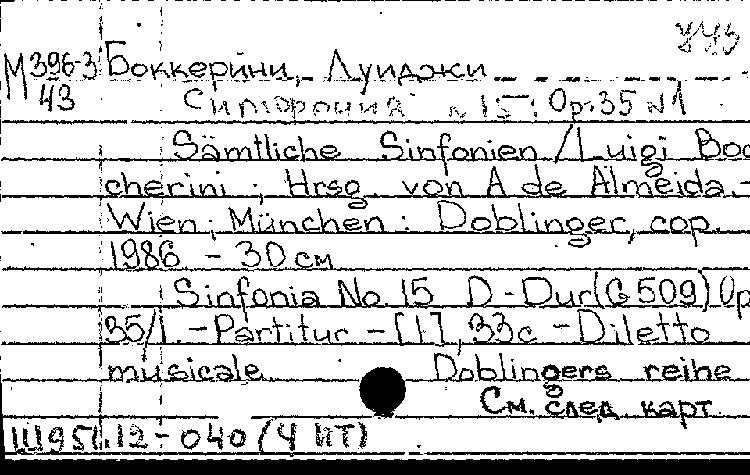 УУЗ
М396-3 Боккерини, Луиджи
43 Симфония № 15; Op.35 №1
Sämtliche Sinfonien / Luigi Boc
cherini ; Hrsg. von A de Almeida.-
Wien ; München : Doblinger, cop.
1986. - 30 см
Sinfonia No. 15 D-Dur (G 509) Op
35/1. - Partitur - [1], 33 с - Diletto
musicale Doblingers reihe
См. след. карт.
Ш951.12-040 (4 ИТ)